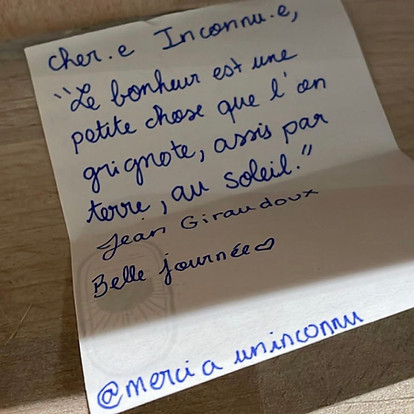 cher.e Inconnu.e,
"Le bonheur est une
petite chose que l'on
grignote, assis par
terre, au soleil."
Jean Giraudoux
Belle journée♡
@merci a uninconnu